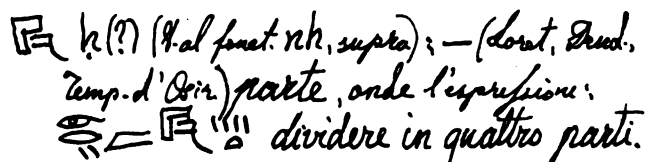 ḥ(?) (V. al fonet. nh, supra); — (Loret, Trad.,
Temp. d'Osir.) parte, onde l'espressione:
dividere in quattro parti.